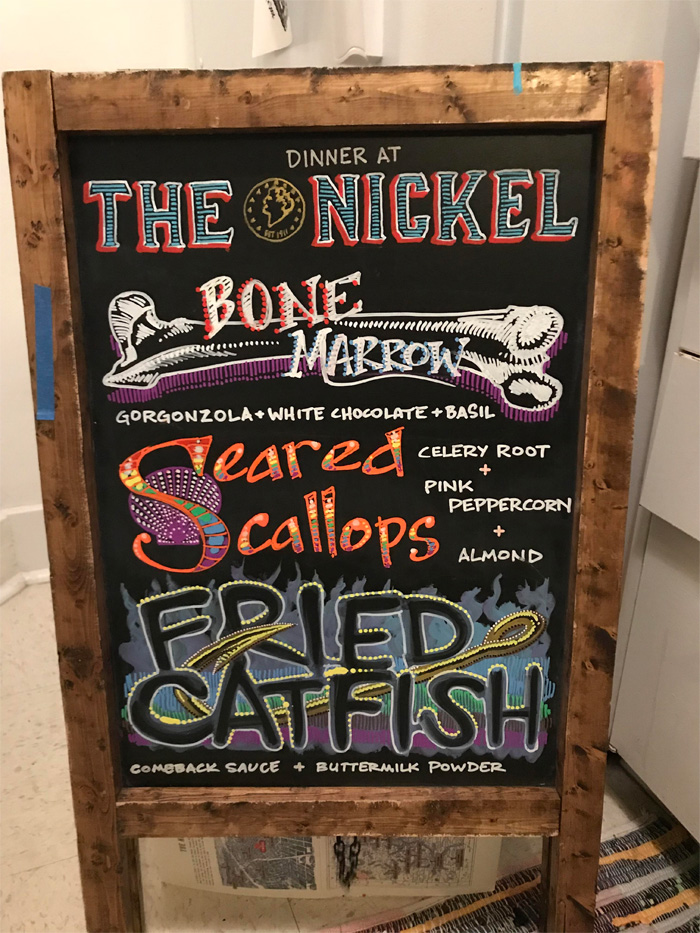 DINNER AT
THE NICKEL
EST 1911
BONE
MARROW
GORGONZOLA + WHITE CHOCOLATE + BASIL
Seared
Scallops
CELERY ROOT
+
PINK
PEPPERCORN
+
ALMOND
FRIED
CATFISH
COMEBACK SAUCE + BUTTERMILK POWDER